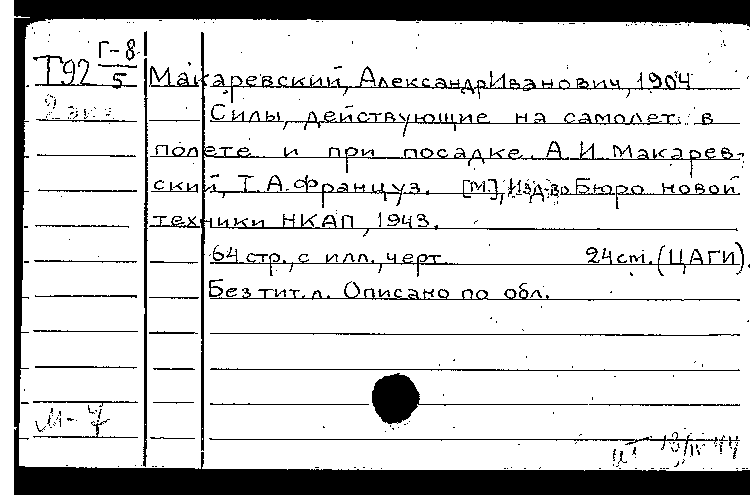 Т92 Г-8/5 Макаревский, Александр Иванович, 1904
2 экз. Силы, действующие на самолет в
полете и при посадке. А.И. Макарев-
ский, Т.А. Француз. [М], Изд-во Бюро новой
техники НКАП, 1943.
64 стр., с илл., черт. 24 cm. (ЦАГИ).
Без тит. л. Описано по обл.
М-7
13/IV 44